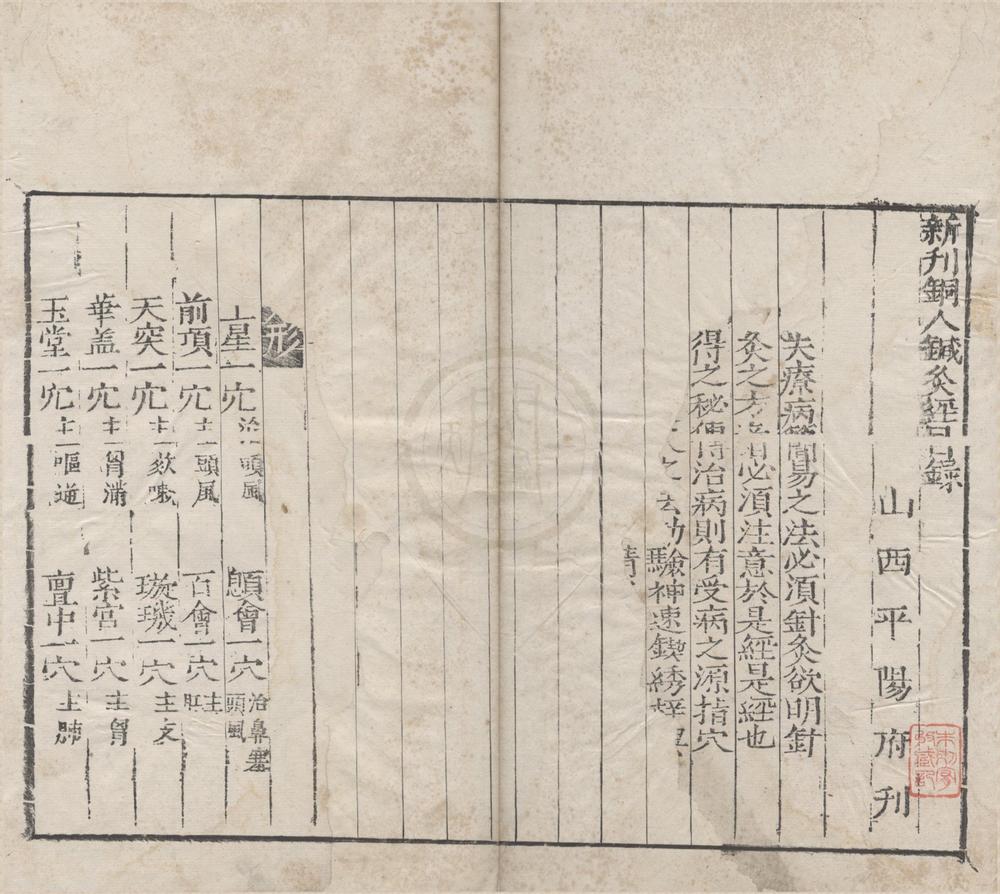 新刊銅人鍼灸經目録
山西平陽府刊
夫療病簡易之法必湏針灸欲明針
灸之方者必湏注意於是經是經也
得之秘傳治病則有受病之源指穴
之功驗神速鍥綉梓
形
上星一穴治頭風 顖會一穴治鼻塞頭風
前頂一穴主頭風 百會一穴主
天突一穴主欬嗽 璇璣一穴主
華盖一穴主胷滿 紫宮一穴主胷
玉堂一穴主嘔逆 亶中一穴主肺